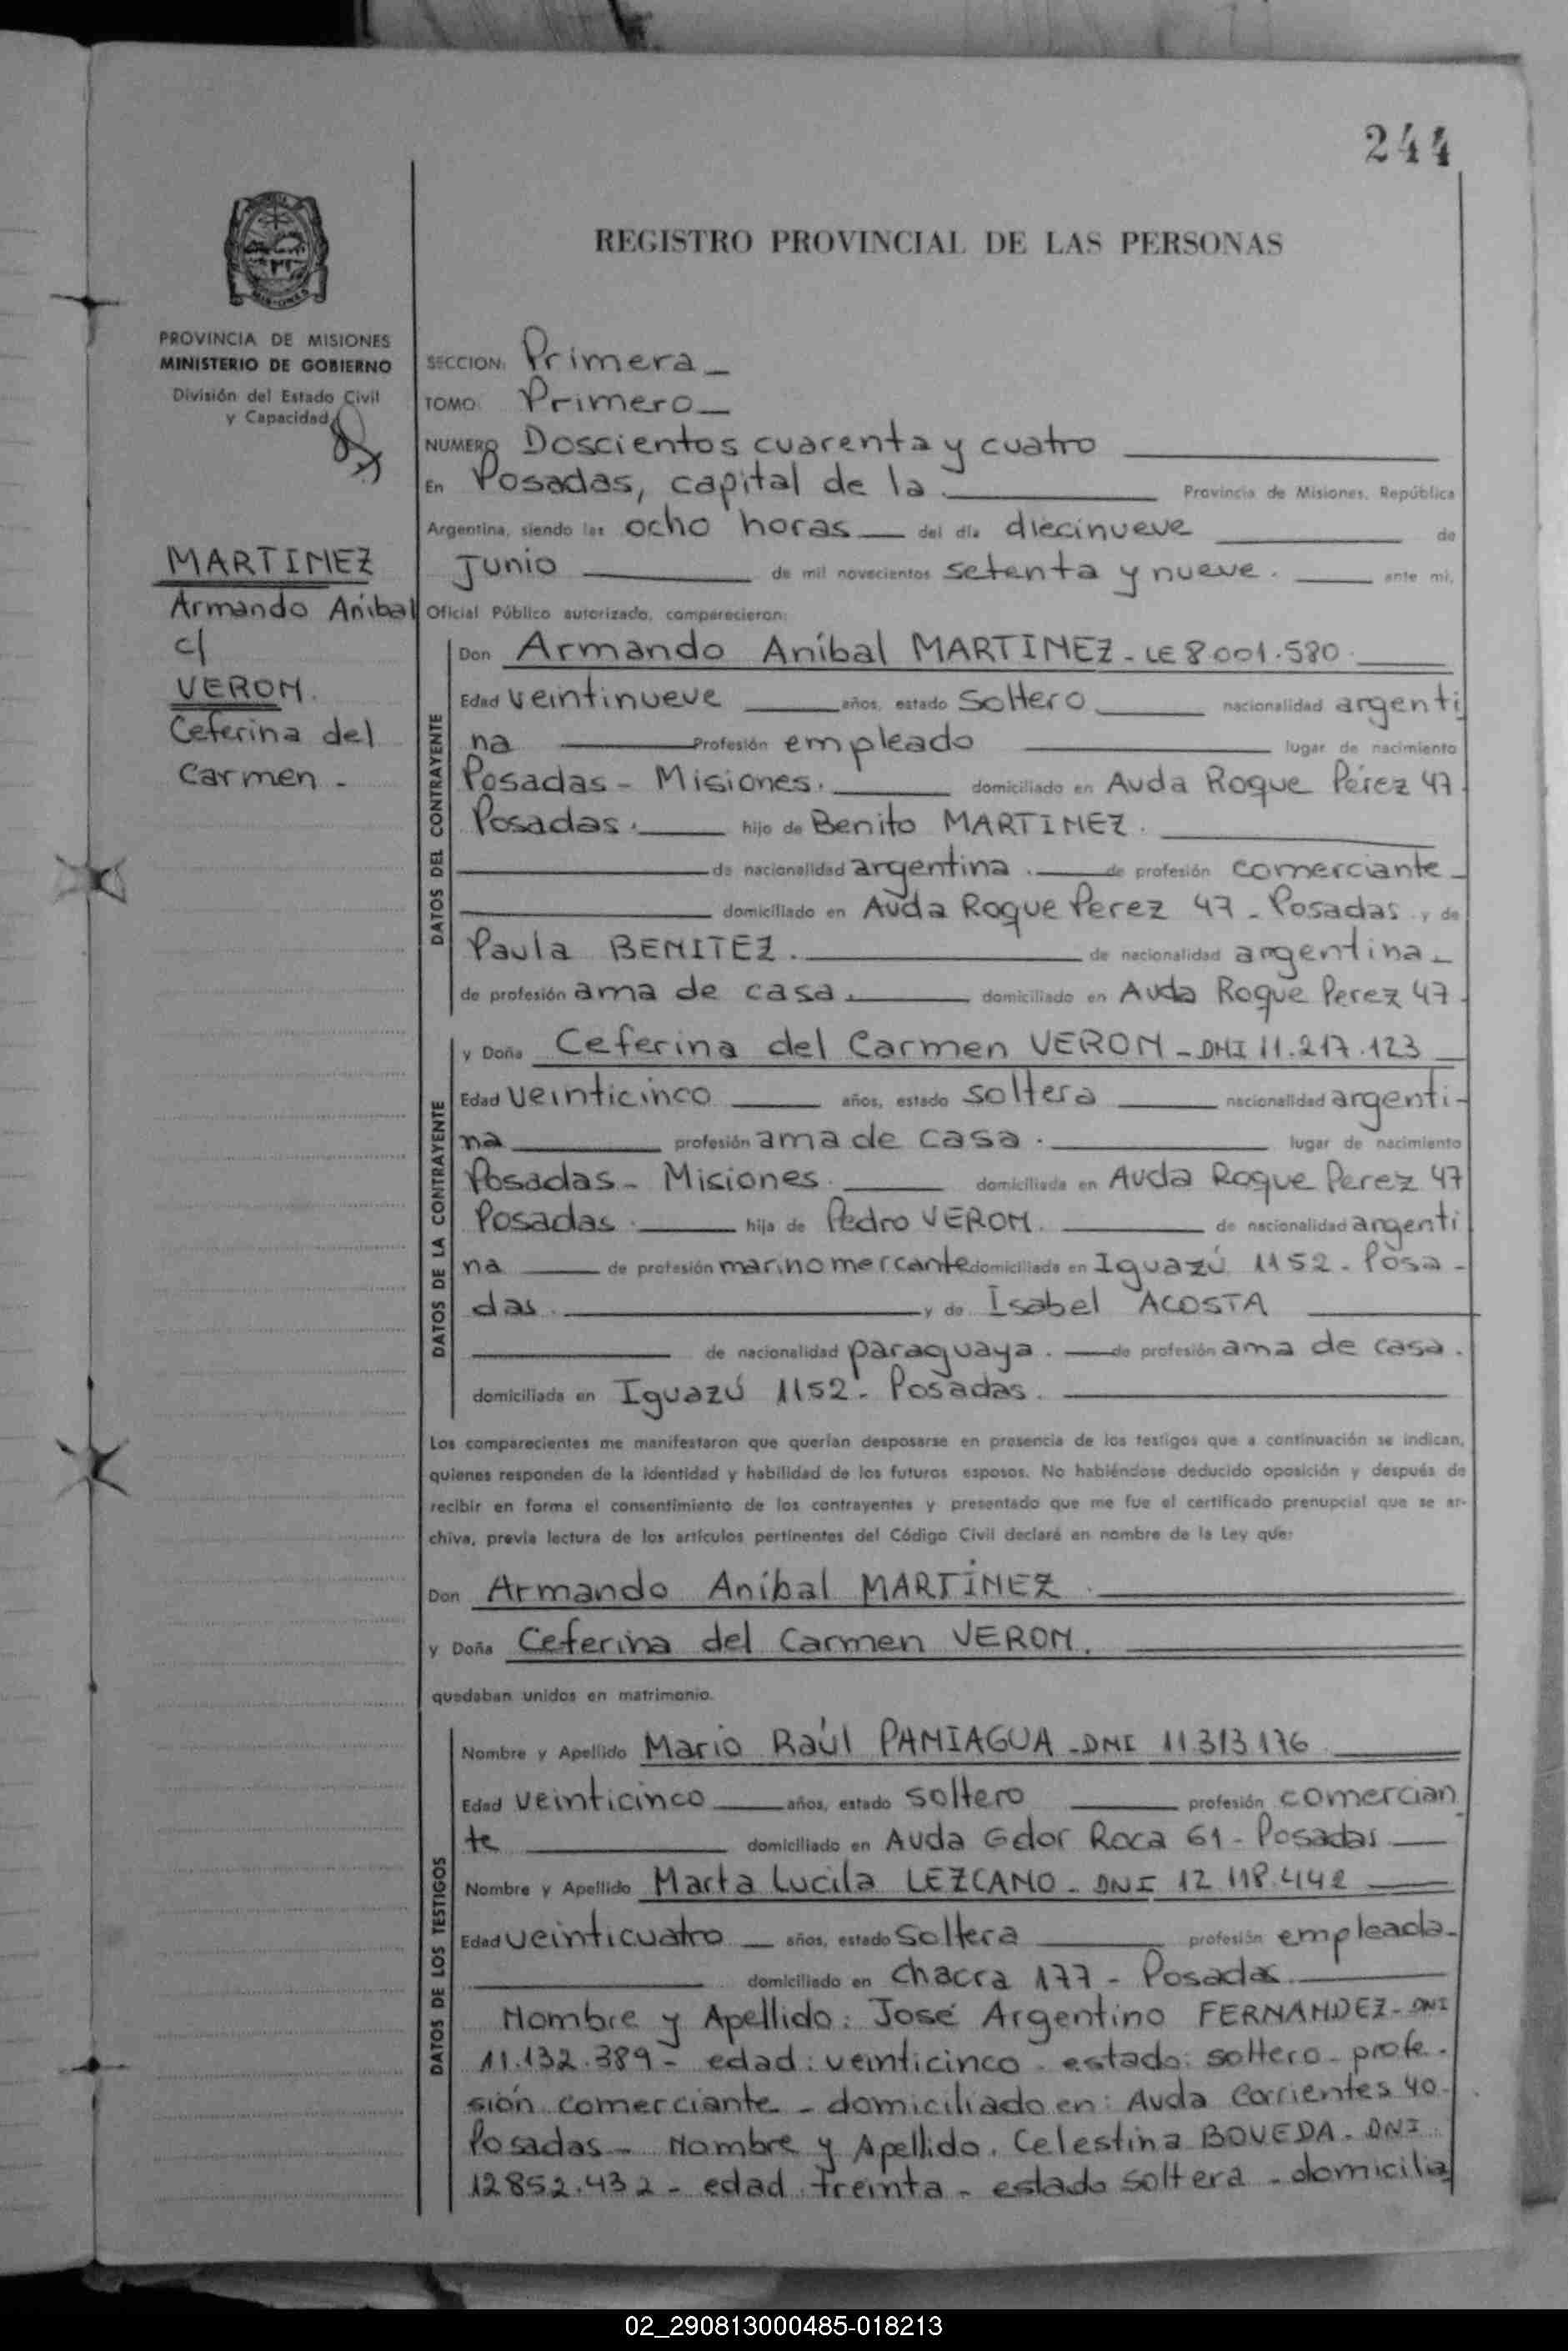 244
REGISTRO PROVINCIAL DE LAS PERSONAS
PROVINCIA DE MISIONES
MINISTERIO DE GOBIERNO
División del Estado Civil
y Capacidad
MARTINEZ
Armando Aníbal
c/
VERON.
Ceferina del
Carmen -
SECCION: Primera
TOMO: Primero
NUMERO Doscientos cuarenta y cuatro
En Posadas, capital de la Provincia de Misiones, República
Argentina, siendo las ocho horas del día diecinueve de
Junio de mil novecientos setenta y nueve. ante mi,
Oficial Público autorizado, comparecieron:
DATOS DEL CONTRAYENTE
Don Armando Aníbal MARTINEZ - LE 8.001.580.
Edad veintinueve años, estado soltero nacionalidad argenti
na Profesión empleado lugar de nacimiento
Posadas - Misiones. domiciliado en Avda Roque Pérez 47.
Posadas. hijo de Benito MARTINEZ.
de nacionalidad argentina. de profesión comerciante
domiciliado en Avda Roque Perez 47 - Posadas y de
Paula BENITEZ. de nacionalidad argentina
de profesión ama de casa. domiciliado en Avda Roque Perez 47.
DATOS DE LA CONTRAYENTE
y Doña Ceferina del Carmen VERON - DNI 11.217.123
Edad veinticinco años, estado soltera nacionalidad argenti-
na profesión ama de casa. lugar de nacimiento
Posadas - Misiones. domiciliada en Avda Roque Perez 47
Posadas. hija de Pedro VERON. de nacionalidad argenti
na de profesión marino mercante domiciliado en Iguazú 1152 - Posa-
das. y de Isabel ACOSTA
de nacionalidad paraguaya. de profesión ama de casa.
domiciliada en Iguazú 1152 - Posadas.
Los comparecientes me manifestaron que querían desposarse en presencia de los testigos que a continuación se indican,
quienes responden de la identidad y habilidad de los futuros esposos. No habiéndose deducido oposición y después de
recibir en forma el consentimiento de los contrayentes y presentado que me fue el certificado prenupcial que se ar-
chiva, previa lectura de los artículos pertinentes del Código Civil declaré en nombre de la Ley que:
Don Armando Aníbal MARTÍNEZ.
y Doña Ceferina del Carmen VERON.
quedaban unidos en matrimonio.
DATOS DE LOS TESTIGOS
Nombre y Apellido Mario Raúl PANIAGUA - DNI 11 313 176
Edad veinticinco años, estado soltero profesión comercian
te domiciliado en Avda Gdor Roca 61 - Posadas
Nombre y Apellido Marta Lucila LEZCANO - DNI 12 118.442
Edad veinticuatro años, estado soltera profesión empleada
domiciliado en chacra 177 - Posadas
Nombre y Apellido: José Argentino FERNANDEZ - DNI
11.132.389 - edad: veinticinco - estado: soltero - profe-
sión comerciante - domiciliado en: Avda Corrientes 40.
Posadas - Nombre y Apellido. Celestina BOVEDA - DNI
12852.432 - edad treinta - estado soltera - domicilia
02_290813000485-018213